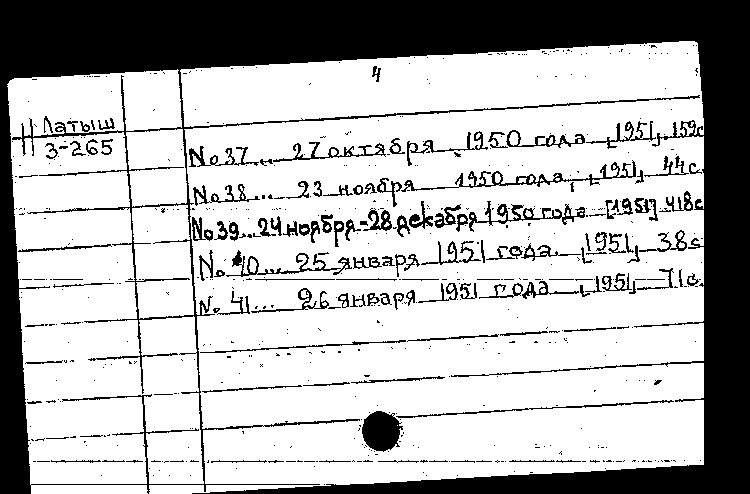 4
II Латыш
3-265
№37... 27 октября 1950 года [1951] 159с
№38... 23 ноября 1950 года, [1951] 44с.
№39...24 ноября-28 декабря 1950 года [1951] 418с
№ 40... 25 января 1951 года. [1951] 38с
№ 41... 26 января 1951 года [1951] 71с.